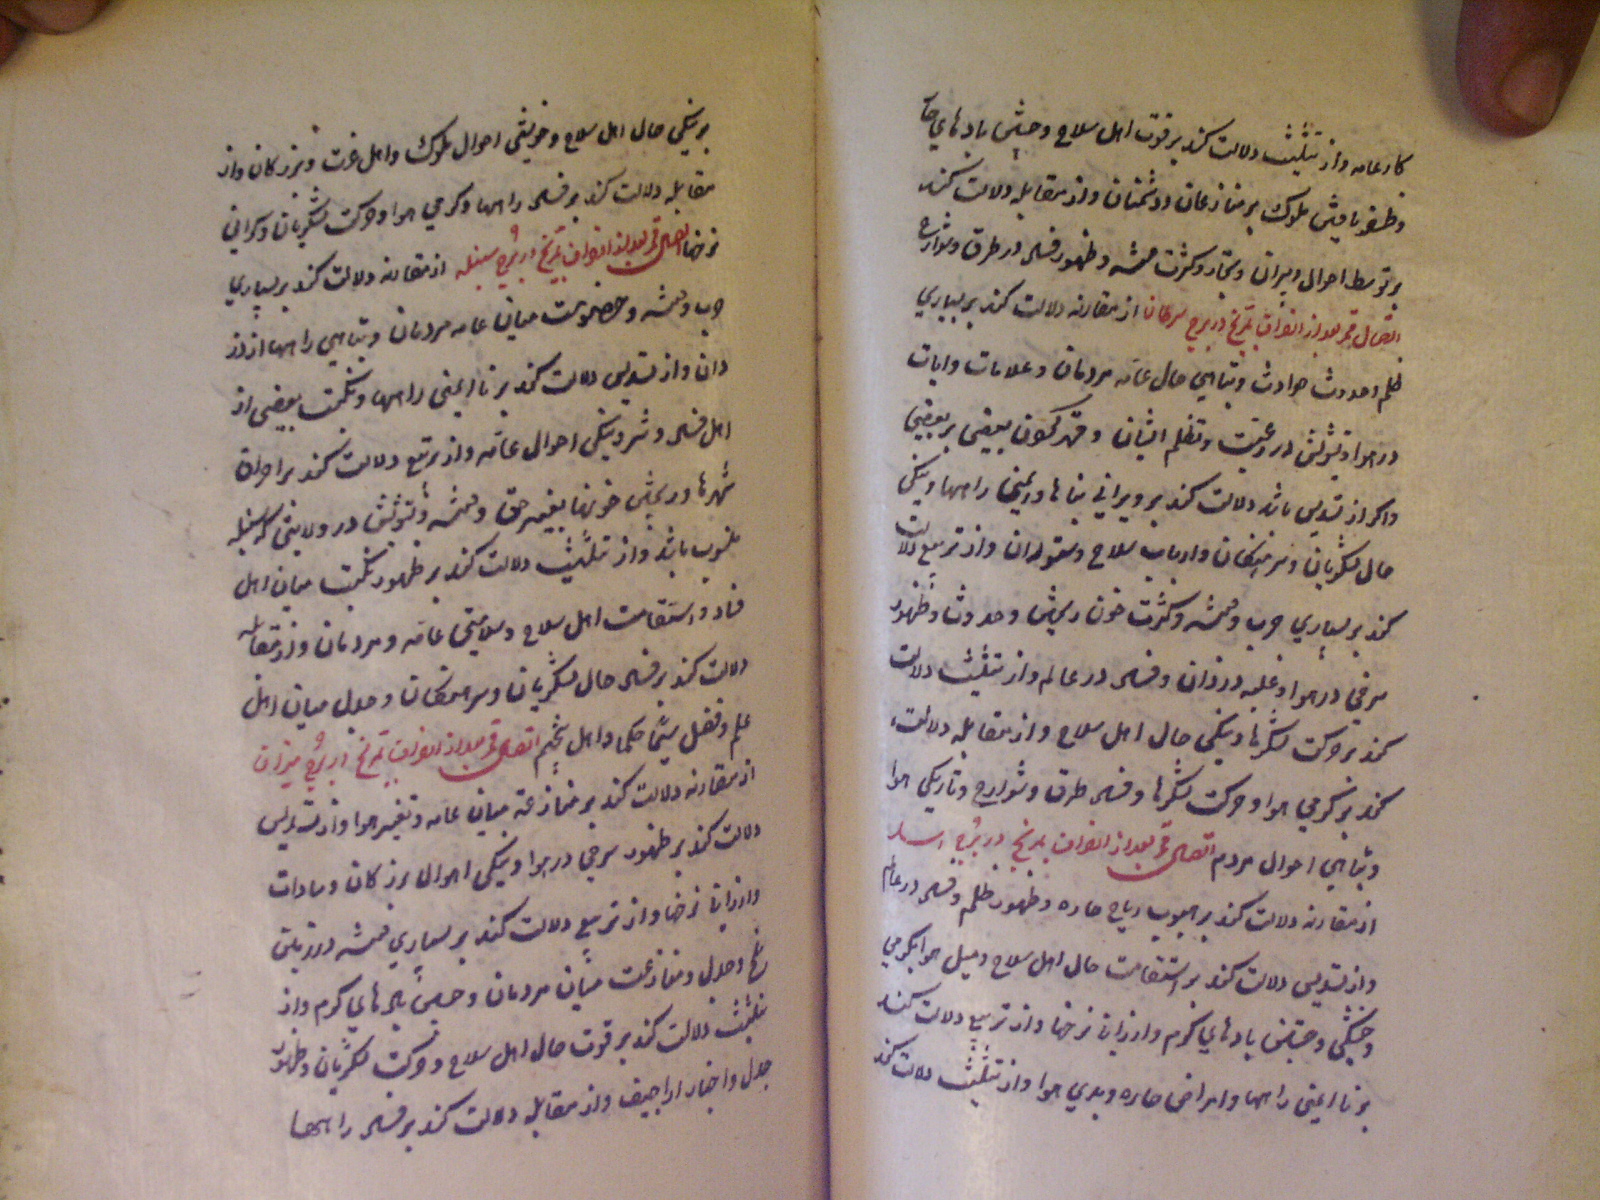 کار عامه و از تثلیث دلالت کند بر قوت اهل سلاح و جستن بادهای
و ظفر یافتن ملوک بر منازعان و دشمنان و از مقابله دلالت کند
بر توسط احوال دبیران و تجار و کثرت فتنه و ظهور فساد در طرق و شوارع
اتصال قمر بعد از انصراف بمریخ در برج سرطان از مقارنه دلالت کند بر بسیاری
ظلم و حدوث حوادث و تباهی حال عامه مردمان و علامات و ایات
در هوا و تشویش در رعیت و تظلم ایشان و قهر کردن بعضی بر بعضی
و اکر از تسدیس باشد دلالت کند بر ویرانی بناها و ایمنی راهها و نیکی
حال لشکریان و سرهنکان و ارباب سلاح و ستوران و از تربیع دلالت
کند بر بسیاری حرب و فتنه و کثرت خون ریختن و حدوث و ظهور
سرخی در هوا و غلبه دزدان و فساد در عالم و از تثلیث دلالت
کند بر حرکت لشکرها و نیکی حال اهل سلاح و از مقابله دلالت
کند بر کرمی هوا و حرکت لشکرها و فساد طرق و شوارع و تاریکی هوا
و تباهی احوال مردم اتصال قمر بعد از انصراف بمریخ در برج اسد
از مقارنه دلالت کند بر هبوب ریاح حاره و ظهور ظلم و فساد در عالم
و از تسدیس دلالت کند بر استقامت حال اهل سلاح و میل هوا بکرمی
و خشکی و جستن بادهای کرم و ارزانی نرخها و از تربیع دلالت کند
بر ناایمنی راهها و امراض حاره و بدی هوا و از تثلیث دلالت کند
بر نیکی حال اهل سلاح و خوبی احوال ملوک و اهل عزت و بزرکان و از
مقابله دلالت کند بر فساد راهها و کرمی هوا و حرکت لشکریان و کرانی
نرخها اتصال قمر بعد از انصراف بمریخ در برج سنبله از مقارنه دلالت کند بر بسیاری
حرب و فتنه و خصومت میان عامه مردمان و تباهی راهها از دز
دان و از تسدیس دلالت کند بر ناایمنی راهها و نکبت بعضی از
اهل فساد و شر و نیکی احوال عامه و از تربیع دلالت کند بر
شهرها و ریختن خونها بغیر حق و فتنه و تشویش در ولایتی که بسنبله
منسوب باشد و از تثلیث دلالت کند بر ظهور نکبت میان اهل
فساد و استقامت اهل سلاح و سلامتی عامه و مردمان و از مقابله
دلالت کند بر فساد حال لشکریان و سرهنکان و جدل میان اهل
علم و فضل سیما حکما و اهل تنجیم اتصال قمر بعد از انصراف بمریخ در برج میزان
از مقارنه دلالت کند بر منازعه میان عامه و تغییر هوا و از تسدیس
دلالت کند بر ظهور سرخی در هوا و نیکی احوال بزرکان و سادات
و ارزانی نرخها و از تربیع دلالت کند بر بسیاری فتنه در زمین
و جدل و منازعت میان مردمان و جستن بادهای کرم و از
تثلیث دلالت کند بر قوت حال اهل سلاح و حرکت لشکریان و ظهور
جدل و اخبار اراجیف و از مقابله دلالت کند بر فساد راهها